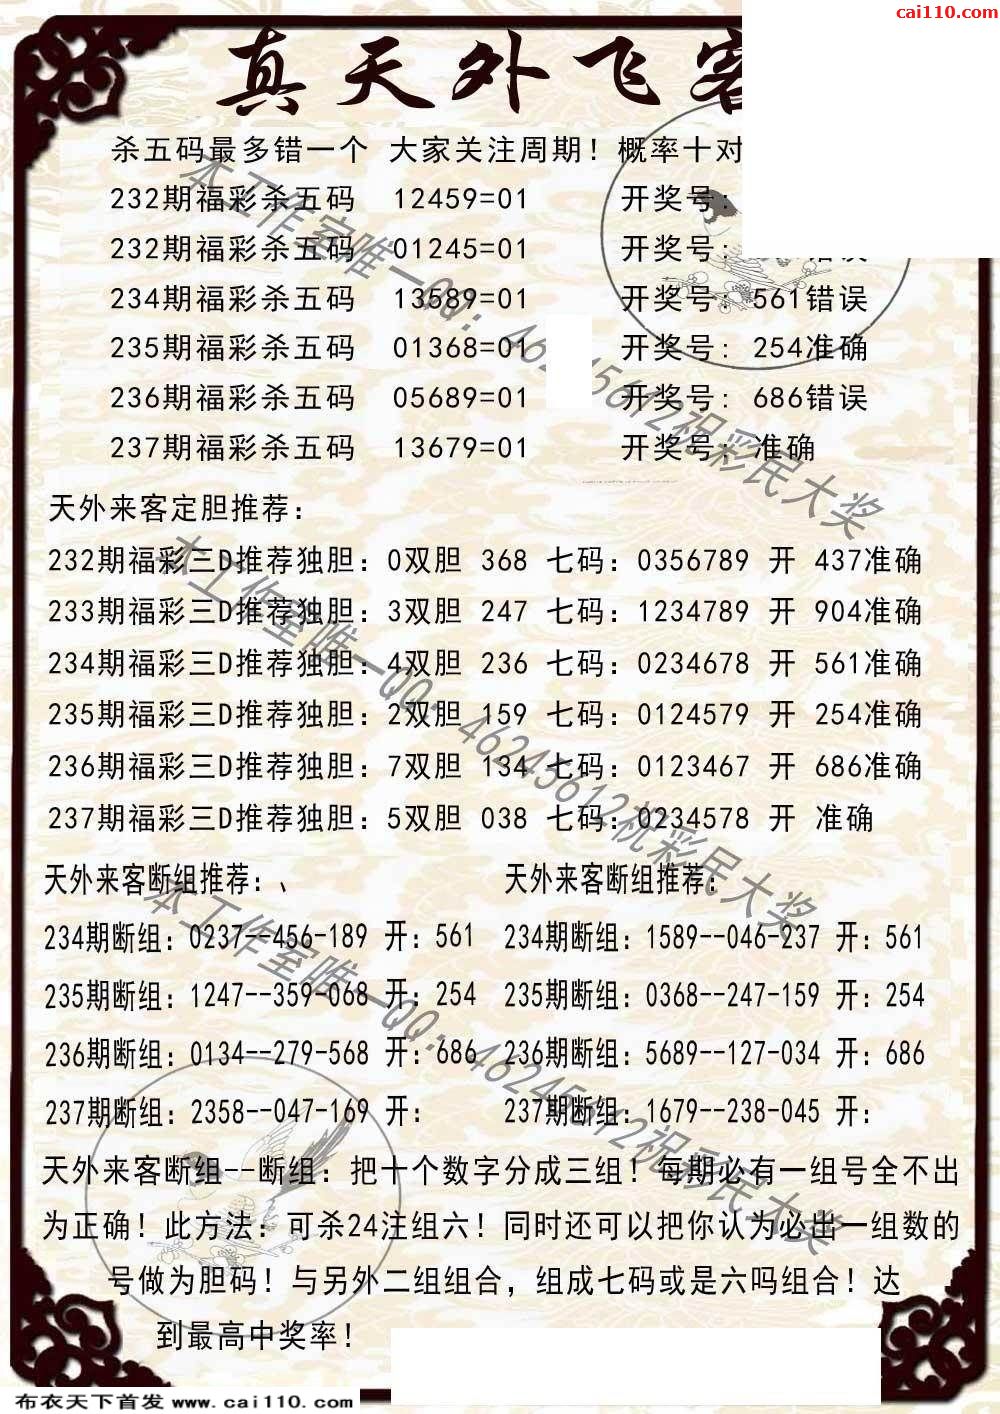 cai110.com
真天外飞客
杀五码最多错一个 大家关注周期！概率十对
232期福彩杀五码 12459=01 开奖号:
232期福彩杀五码 01245=01 开奖号: 错误
234期福彩杀五码 13589=01 开奖号: 561错误
235期福彩杀五码 01368=01 开奖号: 254准确
236期福彩杀五码 05689=01 开奖号: 686错误
237期福彩杀五码 13679=01 开奖号: 准确
天外来客定胆推荐：
232期福彩三D推荐独胆：0双胆 368 七码：0356789 开 437准确
233期福彩三D推荐独胆：3双胆 247 七码：1234789 开 904准确
234期福彩三D推荐独胆：4双胆 236 七码：0234678 开 561准确
235期福彩三D推荐独胆：2双胆 159 七码：0124579 开 254准确
236期福彩三D推荐独胆：7双胆 134 七码：0123467 开 686准确
237期福彩三D推荐独胆：5双胆 038 七码：0234578 开 准确
天外来客断组推荐：、 天外来客断组推荐：
234期断组：0237--456-189 开：561 234期断组：1589--046-237 开：561
235期断组：1247--359-068 开：254 235期断组：0368--247-159 开：254
236期断组：0134--279-568 开：686 236期断组：5689--127-034 开：686
237期断组：2358--047-169 开： 237期断组：1679--238-045 开：
天外来客断组--断组：把十个数字分成三组！每期必有一组号全不出
为正确！此方法：可杀24注组六！同时还可以把你认为必出一组数的
号做为胆码！与另外二组组合，组成七码或是六吗组合！达
到最高中奖率！
本工作室唯一QQ：46245612祝彩民大奖
本工作室唯一QQ：46245612祝彩民大奖
本工作室唯一QQ：46245612祝彩民大奖
布衣天下首发 www.cai110.com